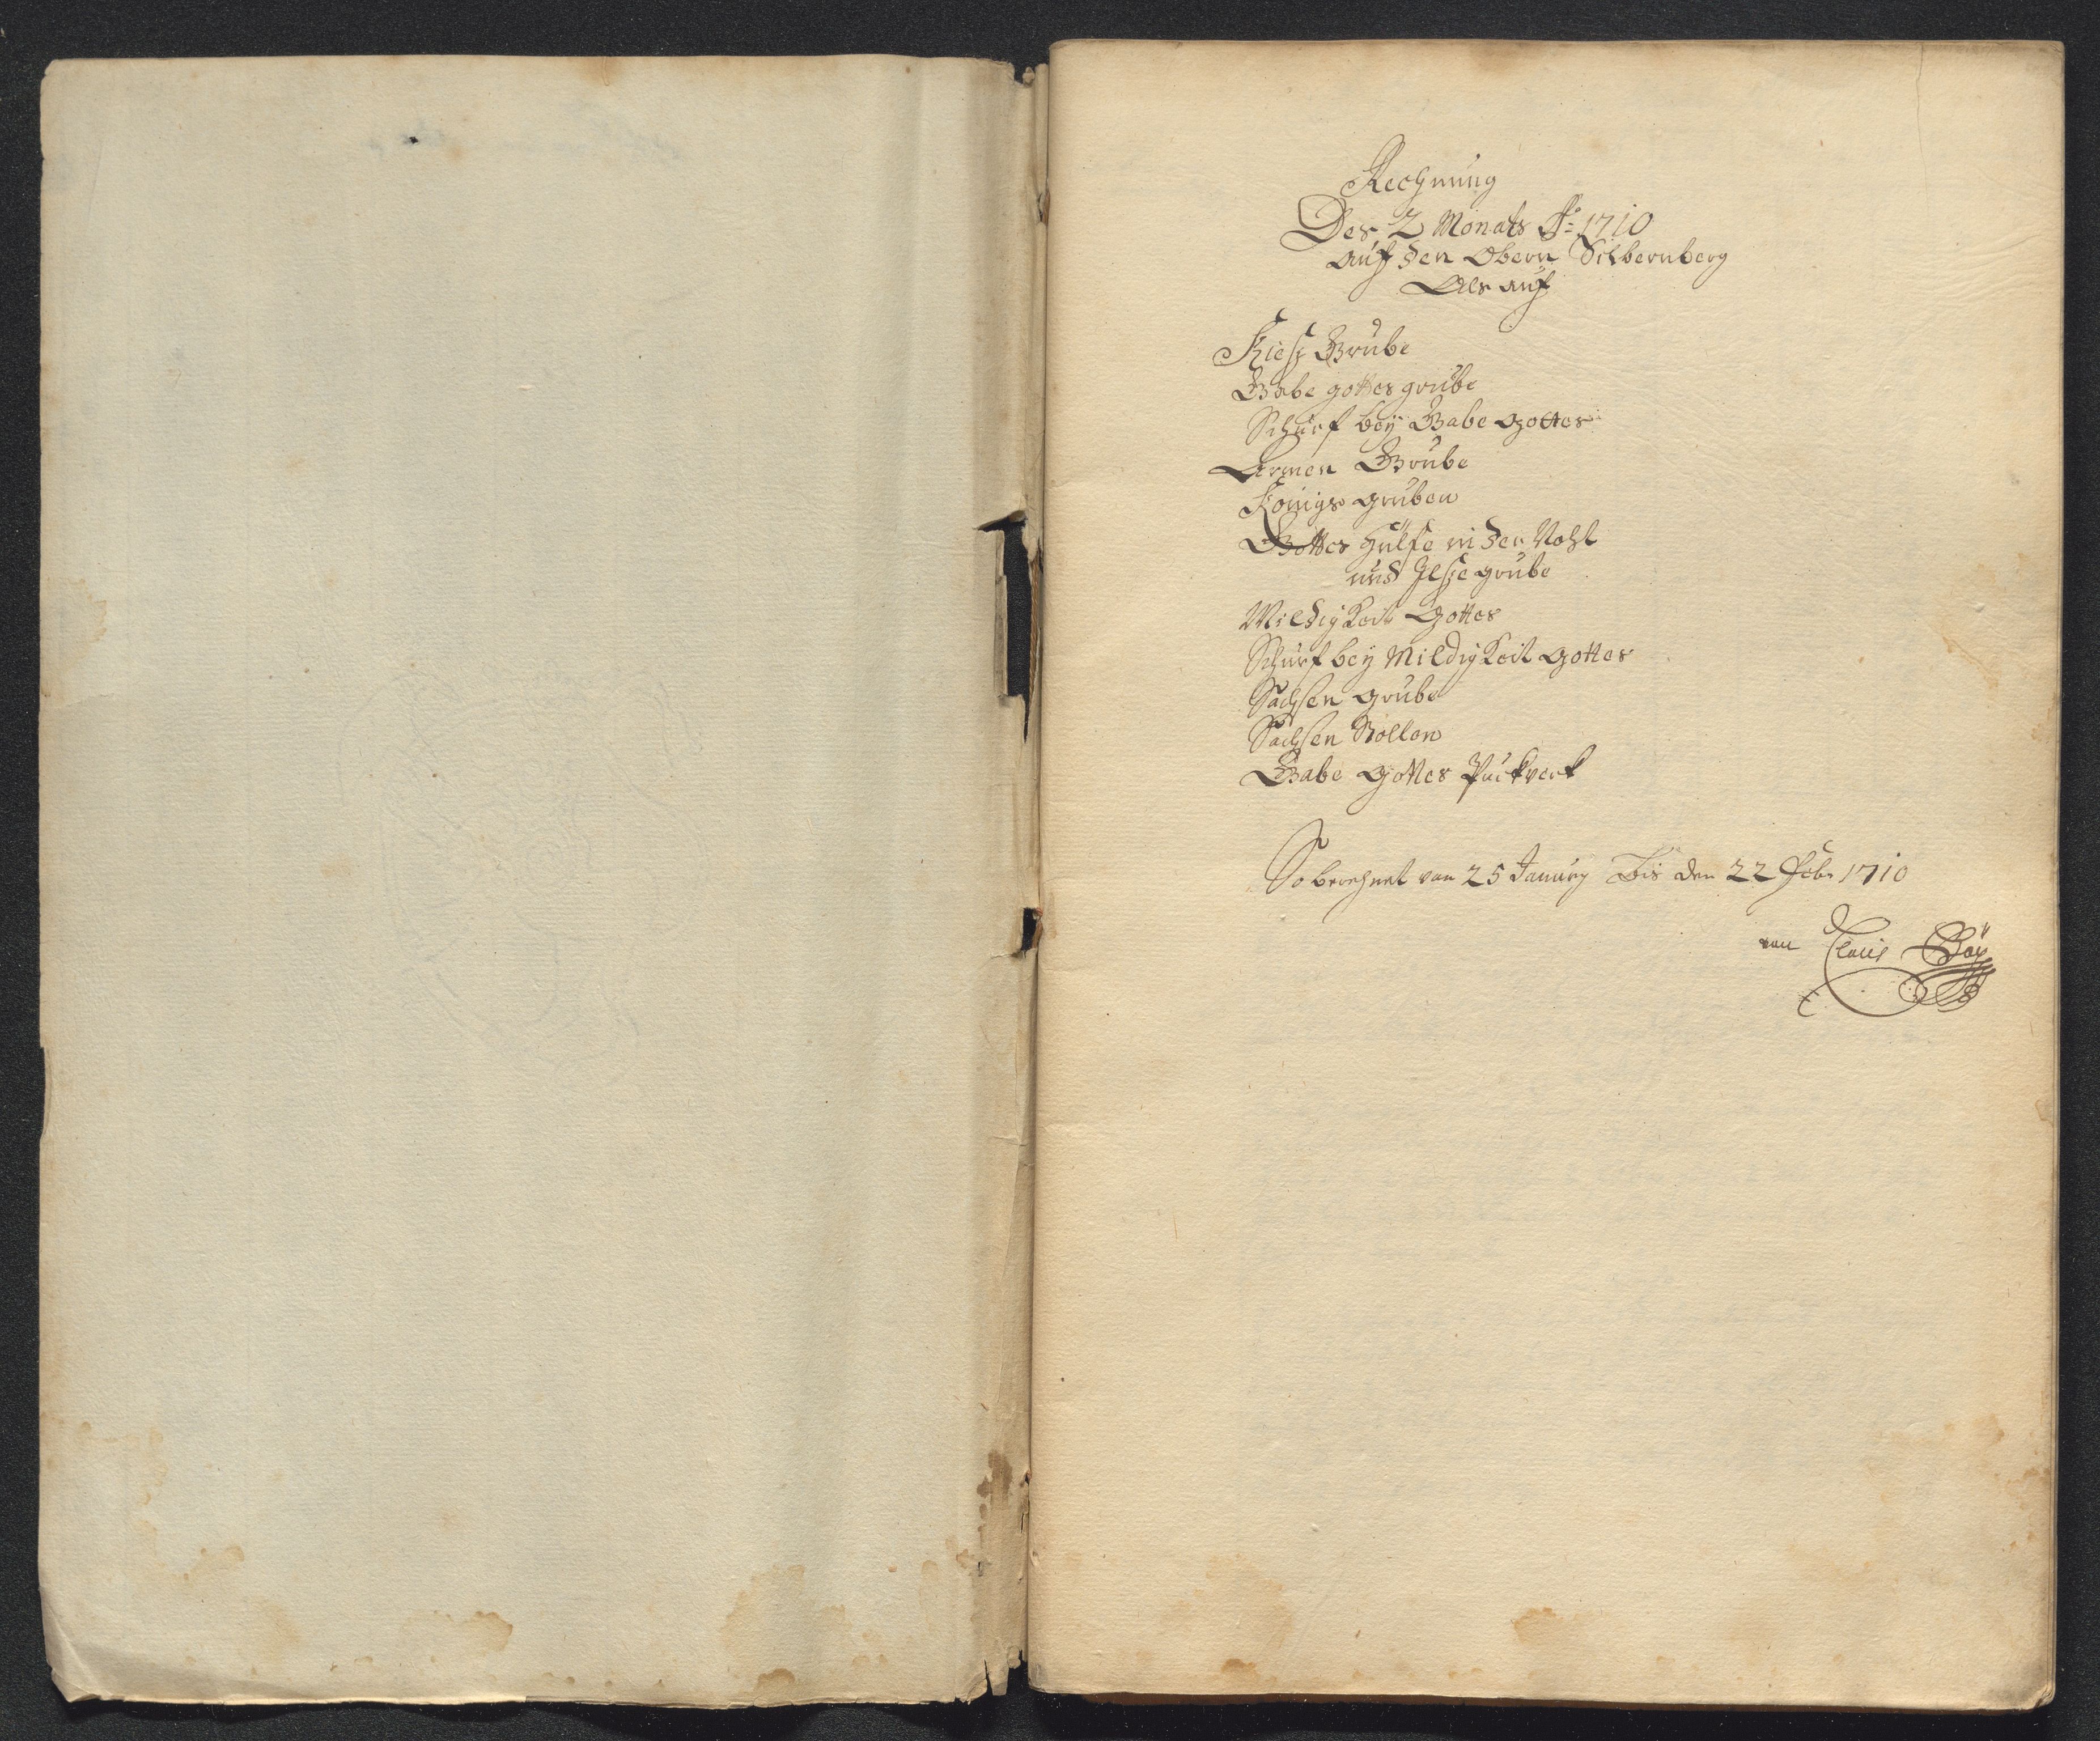 Rechnung
Des 2 Monats Ao 1710
auf den Obern Silbernberg
Als auf
Kiesz Grube
Gabe gottes grube
Schürf bey Gabe gottes
Armen Grube
Königs gruben
Gottes Hülfe in der Noht
und Ilsze grube
Mildigkeit Gottes
Schürf bey Mildigkeit gottes
Sachsen grube
Sachsen Stollen
Gabe gottes Puckwerk
So berechnet von 25 January Bis den 22 Febr 1710
von Claus